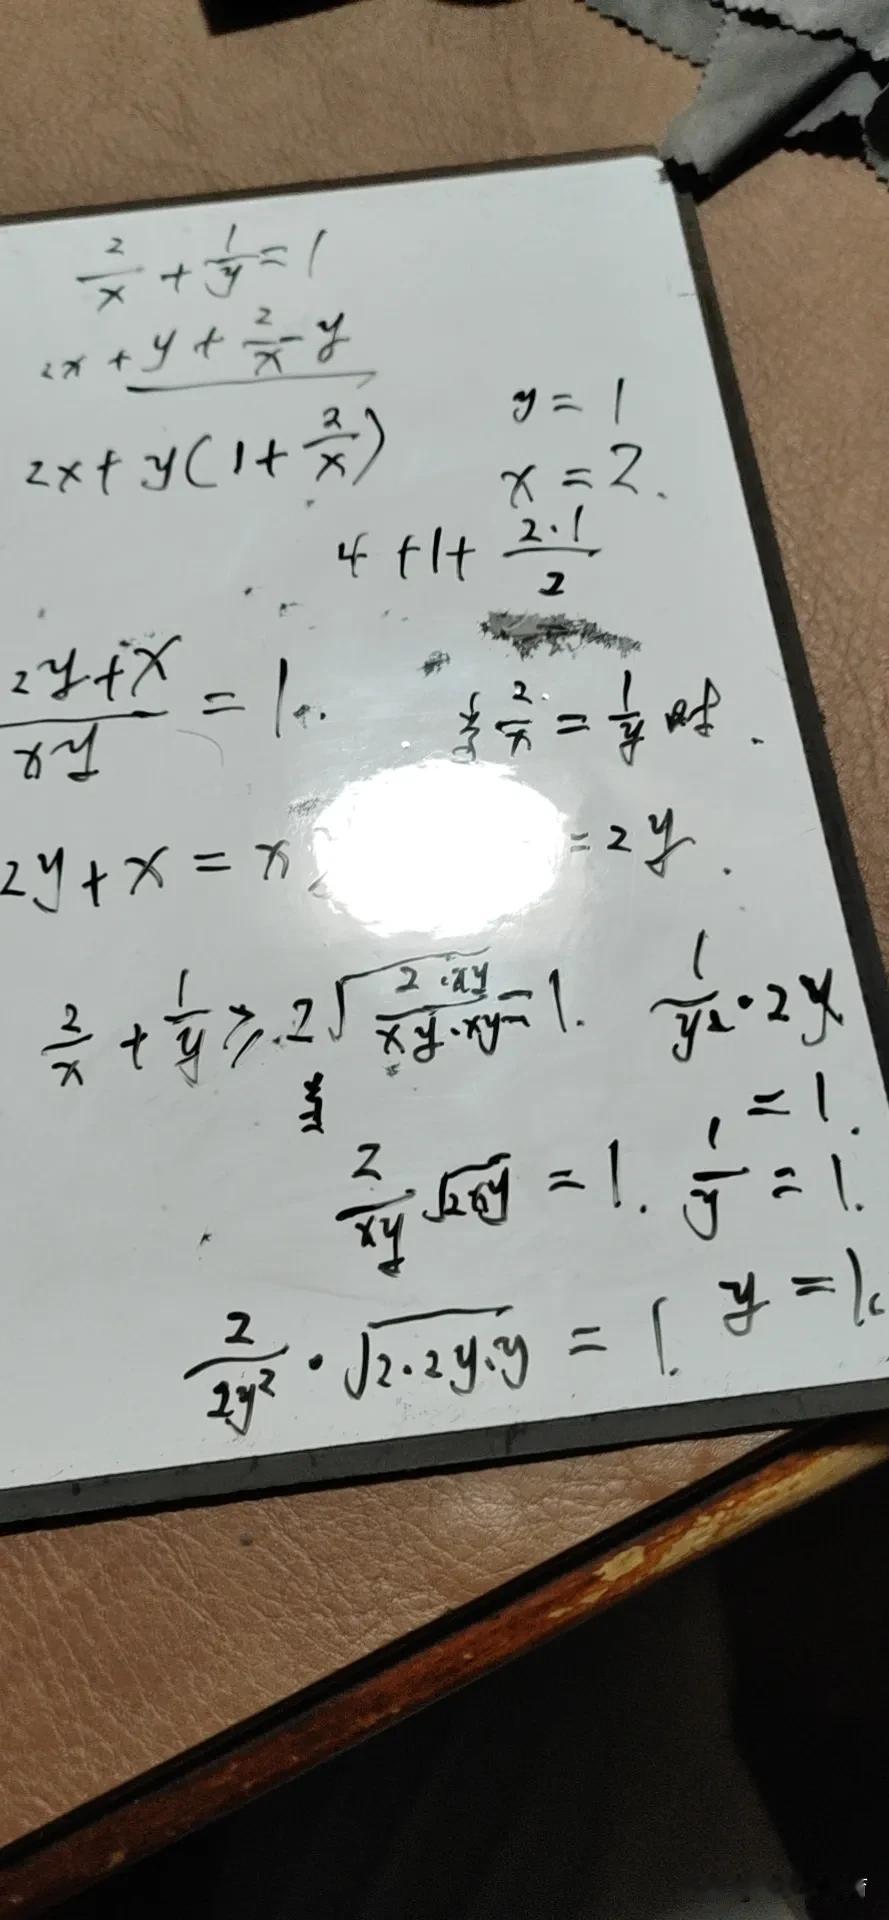 2/x + 1/y = 1
2x + y + 2/x · y
2x + y(1 + 2/x)
y = 1
x = 2.
4 + 1 + 2·1/2
2y+x/xy = 1.
2/x = 1/y 时.
2y + x = x
= 2y.
2/x + 1/y ≥ 2√(2·xy/xy·xy) = 1.
1/y² · 2y
= 1.
2/xy √2xy = 1.
1/y = 1.
2/2y² · √2·2y·y = 1.
y = 1.